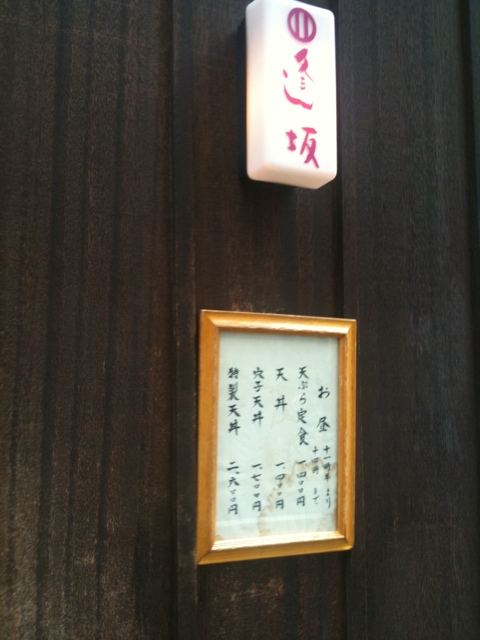 逢坂
お昼
十一時半より
十四時まで
天ぷら定食 一、四〇〇円
天丼 一、四〇〇円
穴子天丼 一、七〇〇円
特製天丼 二、六〇〇円